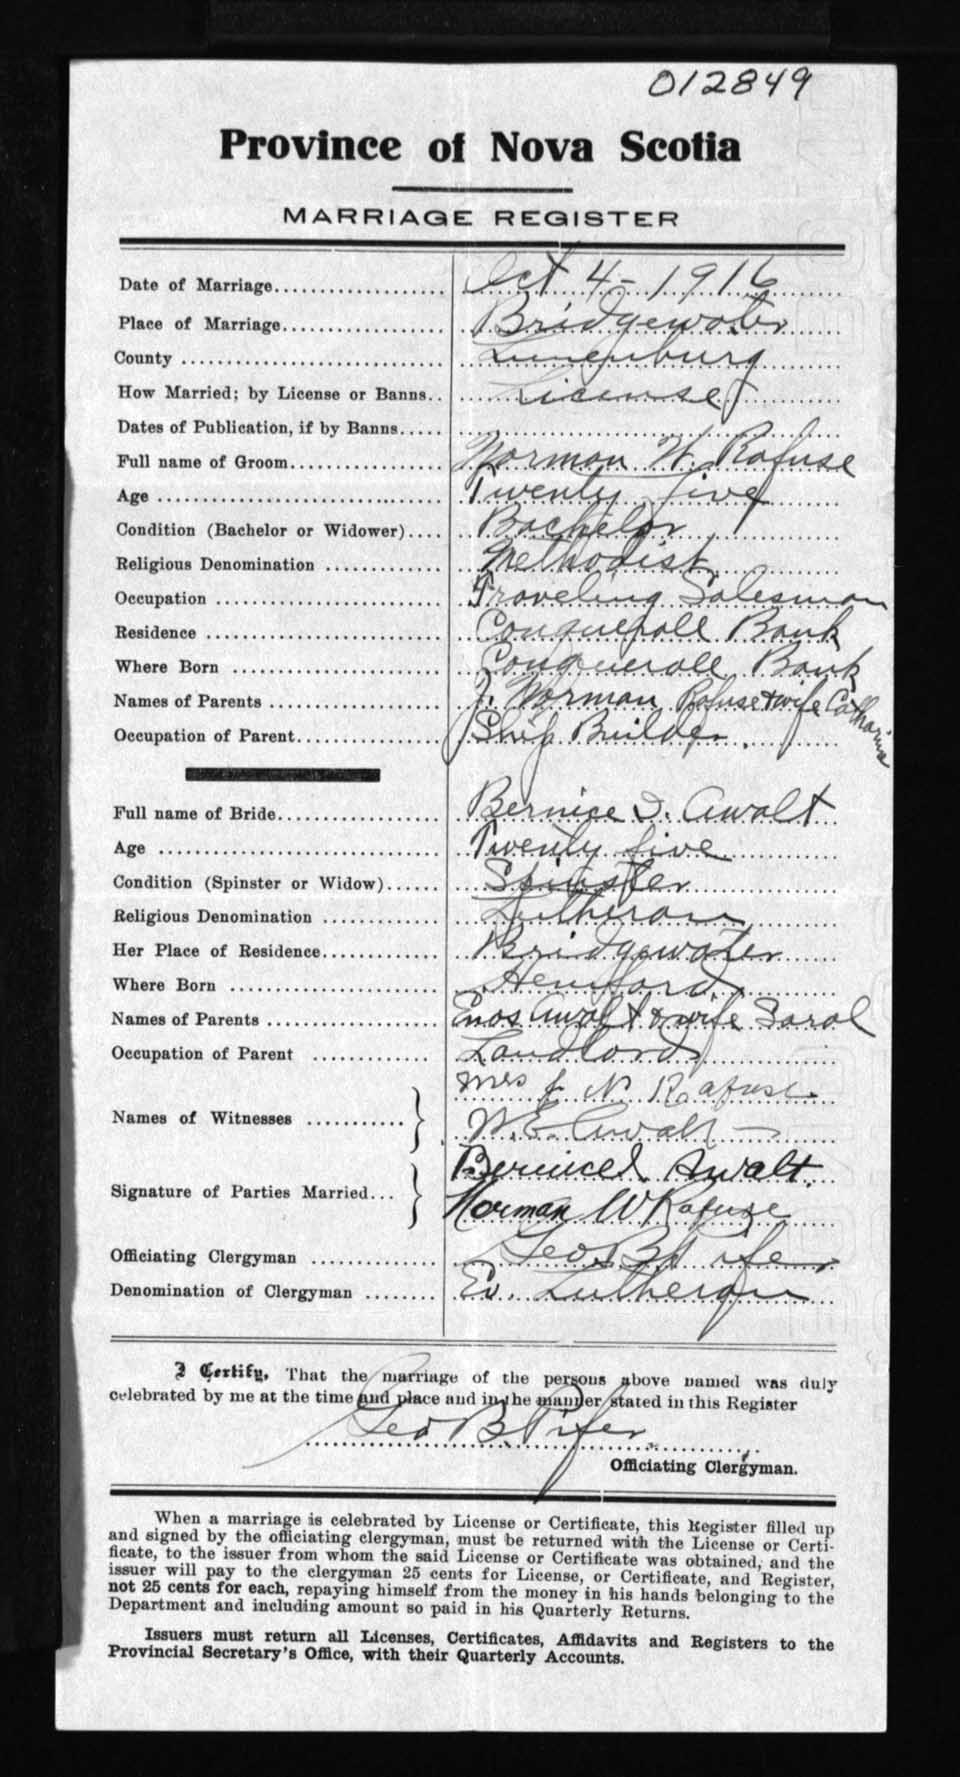 012849
Province of Nova Scotia
MARRIAGE REGISTER
Date of Marriage.................... Oct 4 - 1916
Place of Marriage................... Bridgewater
County ............................. Lunenburg
How Married; by License or Banns.. License
Dates of Publication, if by Banns.....
Full name of Groom.................. Norman W. Rafuse
Age ................................ Twenty five
Condition (Bachelor or Widower).... Bachelor
Religious Denomination ............. Methodist
Occupation ......................... Traveling Salesman
Residence .......................... Conquerall Bank
Where Born ......................... Conquerall Bank
Names of Parents ................... J. Norman Rafuse & wife Catharine
Occupation of Parent................ Ship Builder.
Full name of Bride.................. Bernice I. Awalt
Age ................................ Twenty five
Condition (Spinster or Widow)...... Spinster
Religious Denomination ............. Lutheran
Her Place of Residence............. Bridgewater
Where Born ......................... Hemford
Names of Parents ................... Enos Awalt & wife Sarah
Occupation of Parent ............. Landlord
Names of Witnesses ........... } Mrs J N Rafuse
W.E. Awalt
Signature of Parties Married... } Bernice I. Awalt.
Norman W Rafuse
Officiating Clergyman .............. Geo. B Pifer
Denomination of Clergyman ........ Ev. Lutheran
I Certify, That the marriage of the persons above named was duly
celebrated by me at the time and place and in the manner stated in this Register
Geo B. Pifer
Officiating Clergyman.
When a marriage is celebrated by License or Certificate, this Register filled up
and signed by the officiating clergyman, must be returned with the License or Certi-
ficate, to the issuer from whom the said License or Certificate was obtained, and the
issuer will pay to the clergyman 25 cents for License, or Certificate, and Register,
not 25 cents for each, repaying himself from the money in his hands belonging to the
Department and including amount so paid in his Quarterly Returns.
Issuers must return all Licenses, Certificates, Affidavits and Registers to the
Provincial Secretary's Office, with their Quarterly Accounts.